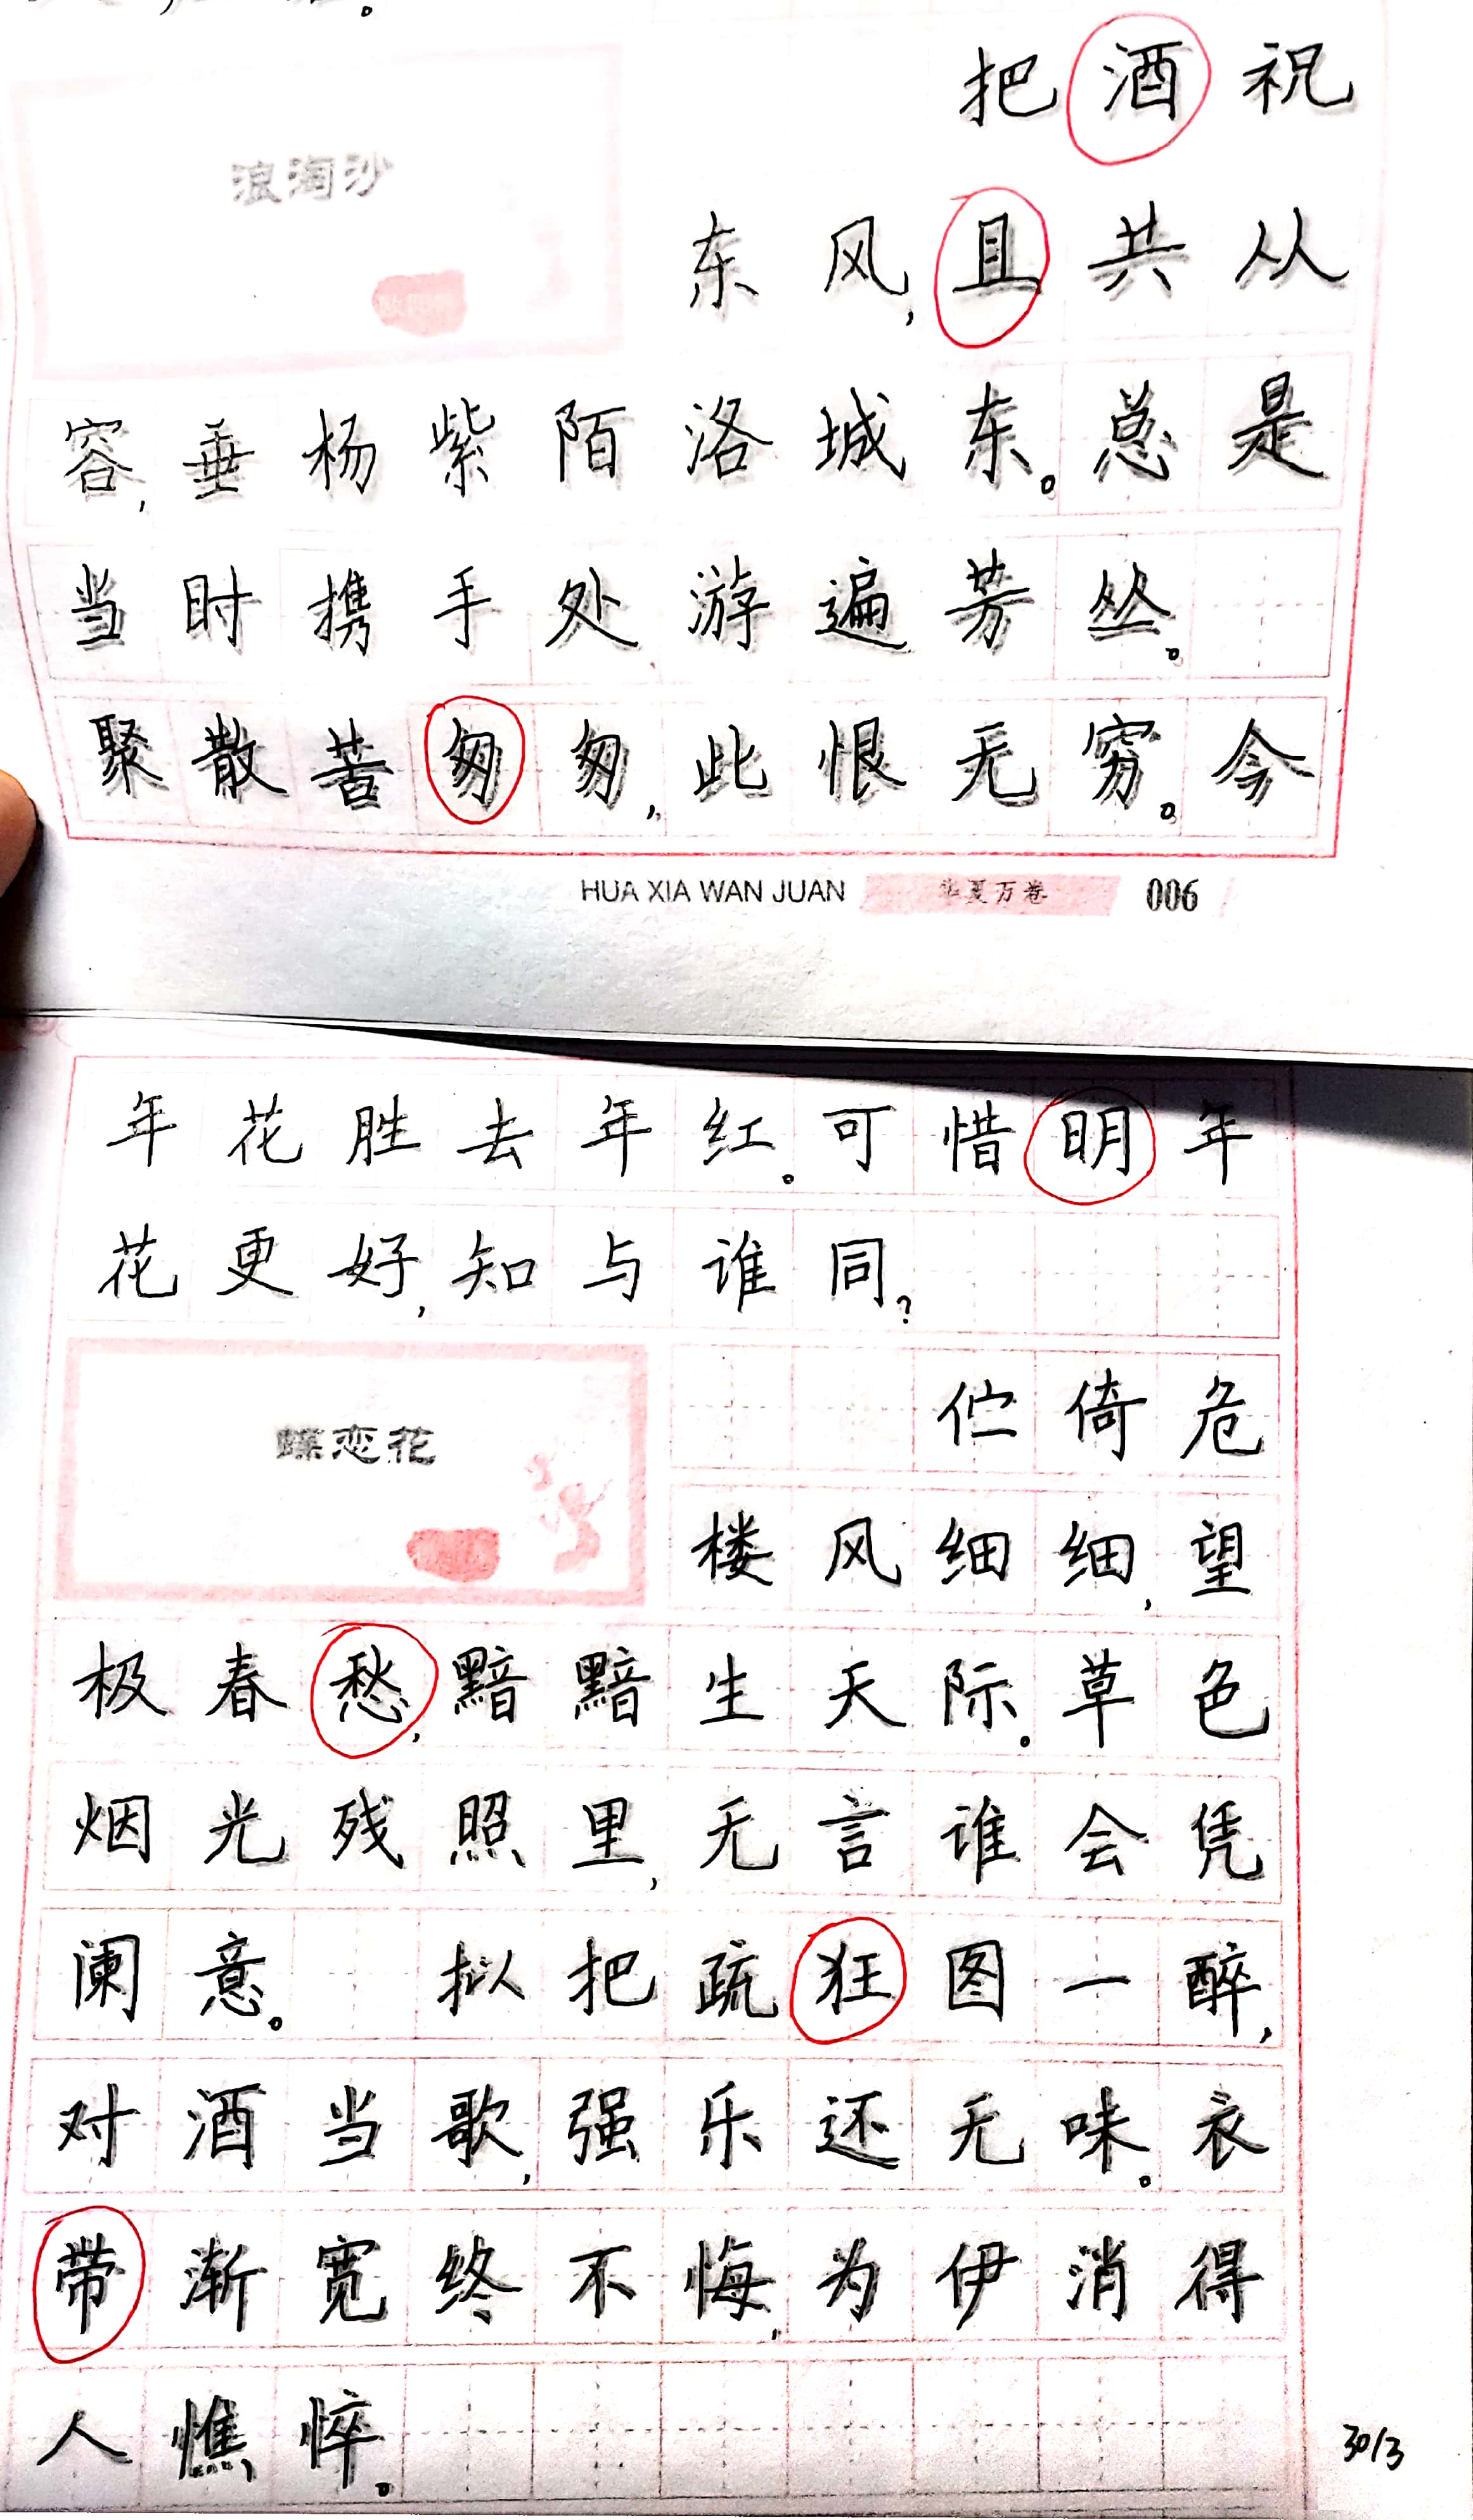 浪淘沙
把酒祝
东风,且共从
容,垂杨紫陌洛城东。总是
当时携手处,游遍芳丛。
聚散苦匆匆,此恨无穷。今
HUA XIA WAN JUAN 华夏万卷 006
年花胜去年红。可惜明年
花更好,知与谁同?
蝶恋花
伫倚危
楼风细细,望
极春愁,黯黯生天际。草色
烟光残照里,无言谁会凭
阑意。 拟把疏狂图一醉,
对酒当歌,强乐还无味。衣
带渐宽终不悔,为伊消得
人憔悴。
30/3